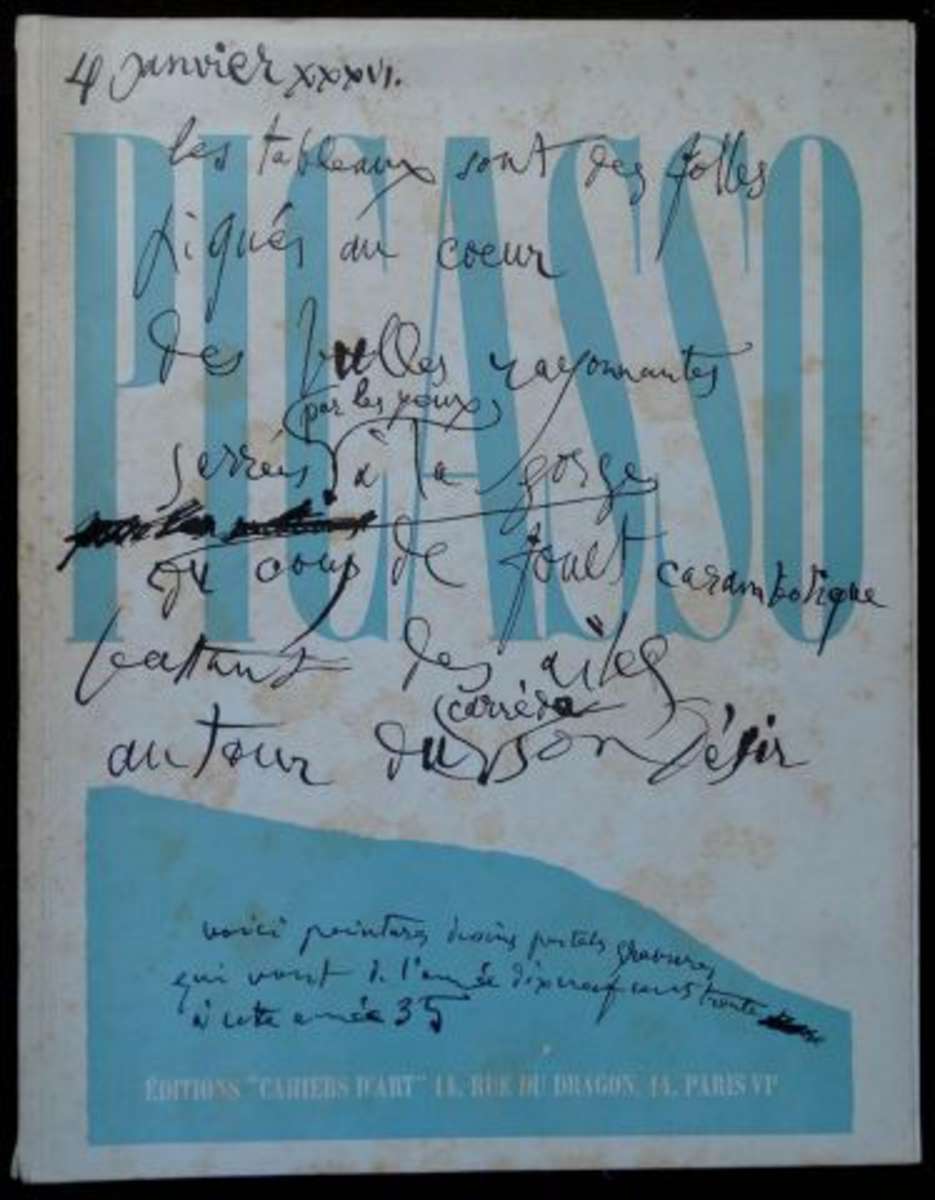 4 janvier XXXVI.
PICASSO
les tableaux sont des folles
piqués au coeur
des bulles rayonnantes
par les yeux
serrées à la gorge
du coup de fouet carambolique
battant des ailes
carré de
autour du son désir
voici peintures dessins pastels gravures
qui vont de l'année dixneufcenstrente
à cette année 35
ÉDITIONS "CAHIERS D'ART" 14, RUE DU DRAGON, 14, PARIS VIe